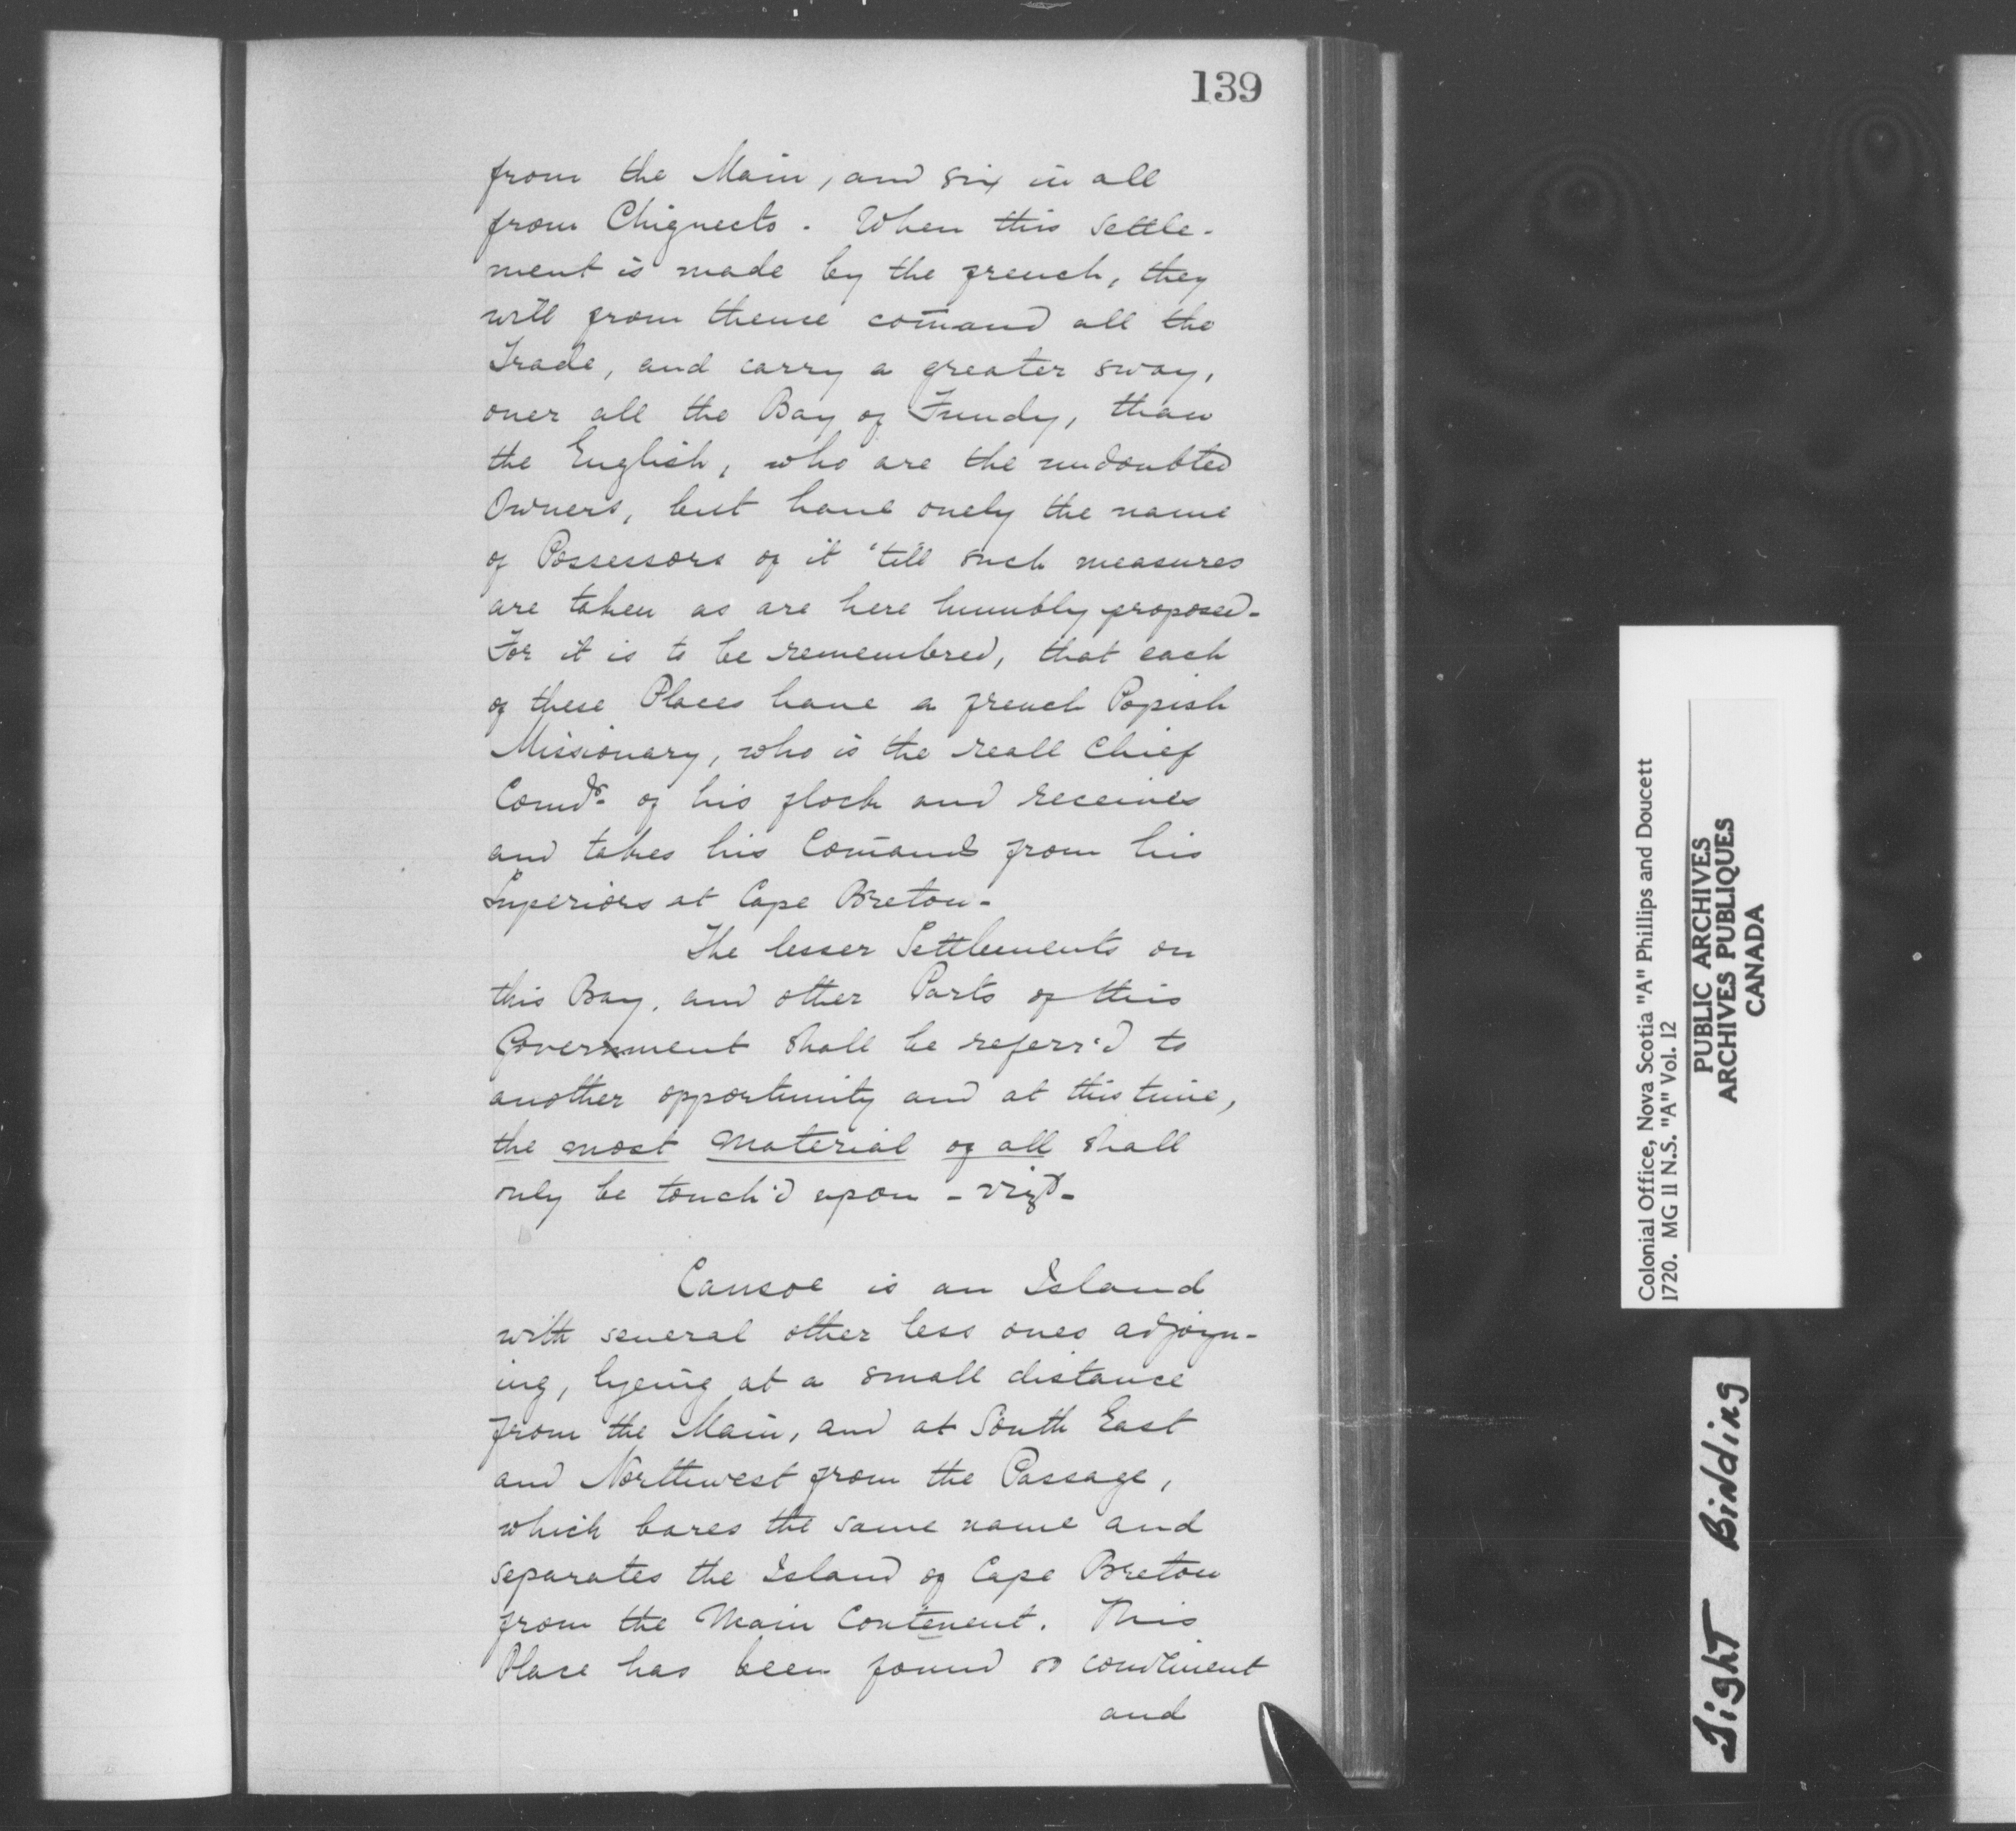 139
from the Main, and six in all
from Chignecto. When this settle-
ment is made by the french, they
will from thence com̄and all the
Trade, and carry a greater sway,
over all the Bay of Fundy, than
the English, who are the undoubted
Owners, but have onely the name
of Possessors of it 'till such measures
are taken as are here humbly proposed-
For it is to be remembred, that each
of these Places have a french Popish
Missionary, who is the reall Chief
Comdr. of his flock and receives
and takes his Com̄ands from his
Superiors at Cape Breton-
The lesser Settlements on
this Bay, and other Parts of this
Government shall be referr'd to
another opportunity and at this time,
the most material of all shall
only be touch'd upon - vizt-
Cansoe is an Island
with several other less ones adjoyn-
ing, lyeing at a small distance
from the Main, and at South East
and Northwest from the Passage,
which bares the same name and
separates the Island of Cape Breton
from the Main Contenent. This
Place has been found so convenient
and
Colonial Office, Nova Scotia "A" Phillips and Doucett
1720. MG 11 N.S. "A" Vol. 12
PUBLIC ARCHIVES
ARCHIVES PUBLIQUES
CANADA
Tight Binding